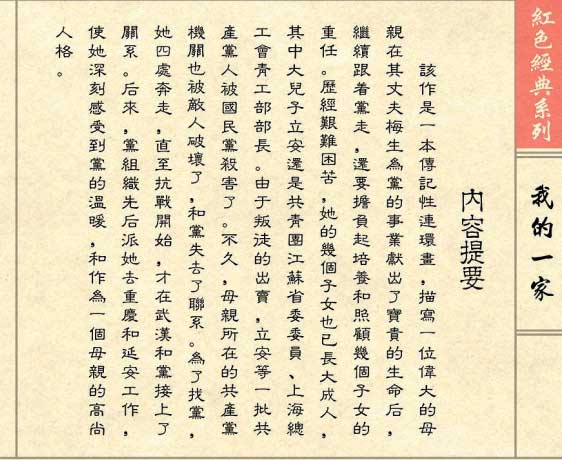 紅色經典系列
我的一家
內容提要
該作是一本傳記性連環畫,描寫一位偉大的母
親在其丈夫梅生為黨的事業獻出了寶貴的生命后,
繼續跟着黨走,還要擔負起培養和照顧幾個子女的
重任。歷經艱難困苦,她的幾個子女也已長大成人,
其中大兒子立安還是共青團江蘇省委委員、上海總
工會青工部部長。由于叛徒的出賣,立安等一批共
產黨人被國民黨殺害了。不久,母親所在的共產黨
機關也被敵人破壞了,和黨失去了聯系。為了找黨,
她四處奔走,直至抗戰開始,才在武漢和黨接上了
關系。后來,黨組織先后派她去重慶和延安工作,
使她深刻感受到黨的溫暖,和作為一個母親的高尚
人格。